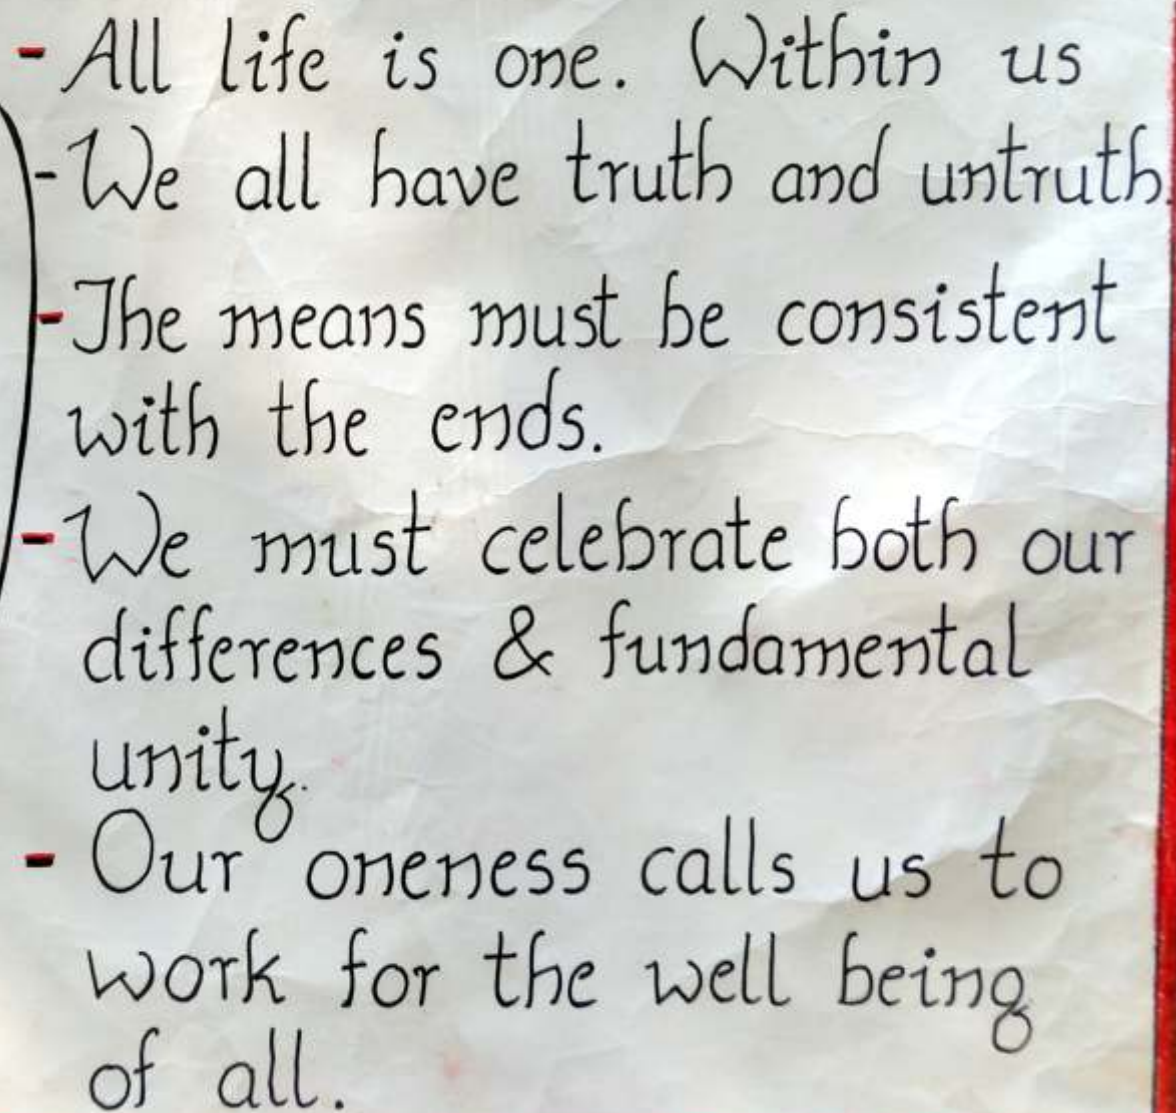 - All life is one. Within us
- We all have truth and untruth.
- The means must be consistent
with the ends.
- We must celebrate both our
differences & fundamental
unity.
- Our oneness calls us to
work for the well being
of all.